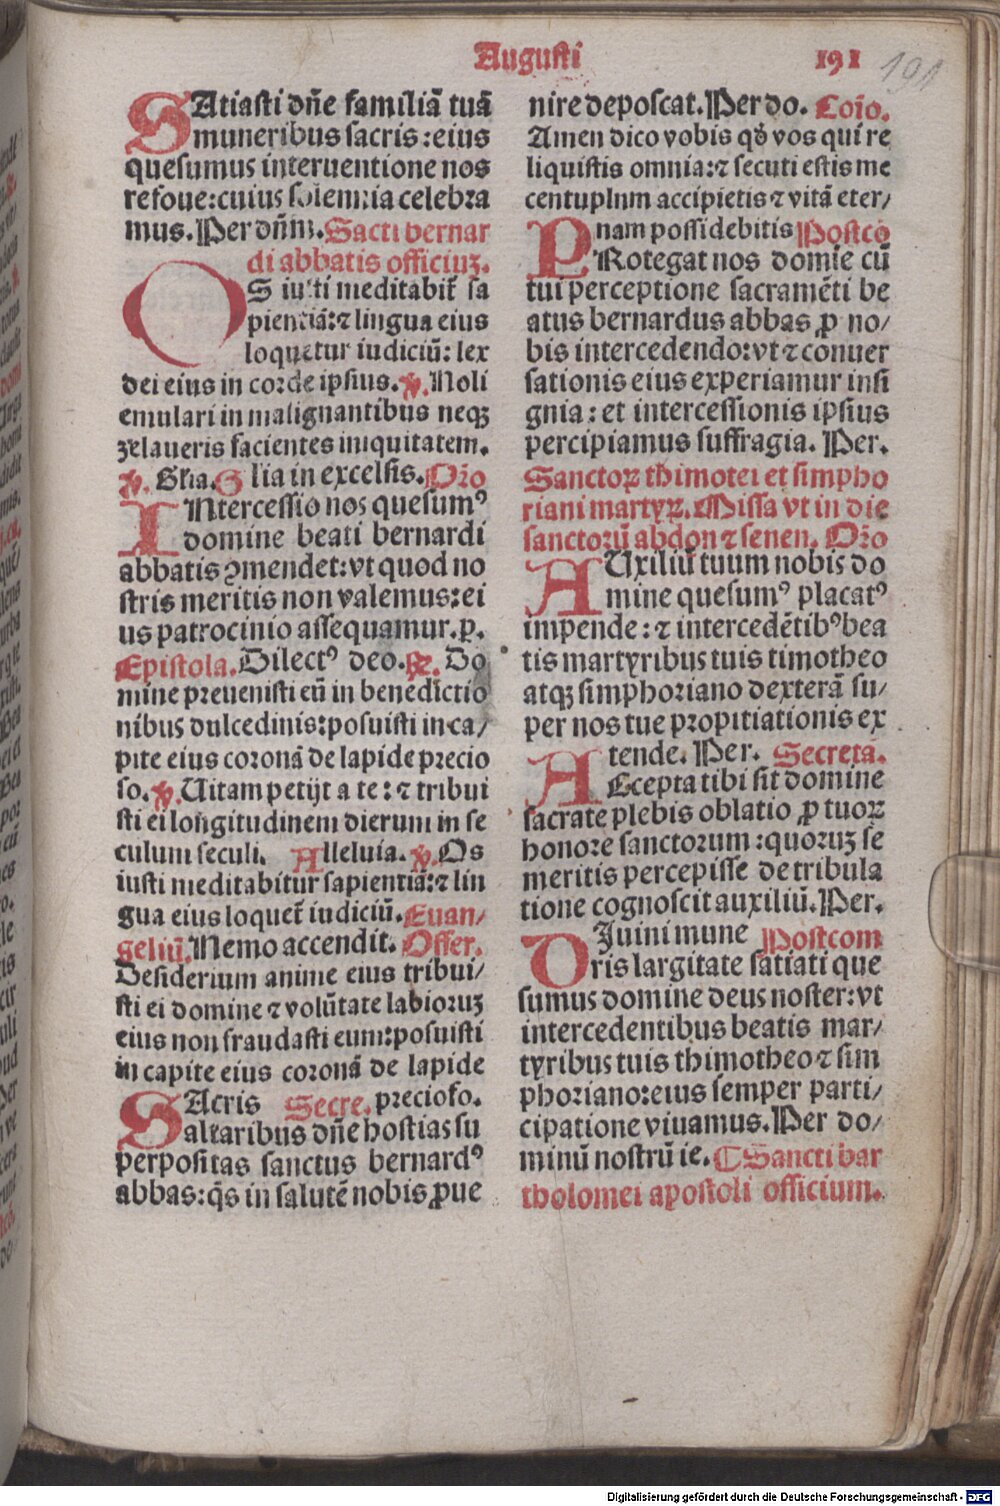 Augusti
191
191
SAtiasti dñe familiā tuā
muneribus sacris: eius
quesumus interuentione nos
refoue: cuius solemnia celebra
mus. Per dñm. Sācti bernar
di abbatis officiuꝫ.
OS iusti meditabit̃ sa
pientiā: ⁊ lingua eius
loquetur iudiciū: lex
dei eius in corde ipsius. ℣. Noli
emulari in malignantibus neqꝫ
zelaueris facientes iniquitatem.
℣. Glia. Glia in excelsis. Oro
INtercessio nos quesumꝰ
domine beati bernardi
abbatis ꝯmendet: vt quod no
stris meritis non valemus: ei
us patrocinio assequamur. p.
Epistola. Dilectꝰ deo. ℟. Do
mine preuenisti eū in benedictio
nibus dulcedinis: posuisti in ca/
pite eius coronā de lapide precio
so. ℣. Uitam petijt a te: ⁊ tribui
sti ei longitudinem dierum in se
culum seculi. Alleluia. ℣. Os
iusti meditabitur sapientiā: ⁊ lin
gua eius loquet̃ iudiciū. Euan/
geliū. Nemo accendit. Offer.
Desiderium anime eius tribui/
sti ei domine ⁊ volūtate labioruꝫ
eius non fraudasti eum: posuisti
in capite eius coronā de lapide
SAcris Secre. precioso.
altaribus dñe hostias su
perpositas sanctus bernardꝰ
abbas: q̄s in salutē nobis ꝓue
nire deposcat. Per do. Coīo.
Amen dico vobis qď vos qui re
liquistis omnia: ⁊ secuti estis me
centuplum accipietis ⁊ vitā eter/
nam possidebitis Postcō
PRotegat nos domie cū
tui perceptione sacramēti be
atus bernardus abbas ꝓ no/
bis intercedendo: vt ⁊ conuer
sationis eius experiamur insi
gnia: et intercessionis ipsius
percipiamus suffragia. Per.
Sanctoꝝ thimotei et simpho
riani martyꝝ. Missa vt in die
sanctorū abdon ⁊ senen. Oro
AUxiliū tuum nobis do
mine quesumꝰ placatꝰ
impende: ⁊ intercedētibꝰ bea
tis martyribus tuis timotheo
atqꝫ simphoriano dexterā su/
per nos tue propitiationis ex
tende. Per. Secreta.
AEcepta tibi sit domine
sacrate plebis oblatio ꝓ tuoꝝ
honore sanctorum: quoruꝫ se
meritis percepisse de tribula
tione cognoscit auxiliū. Per.
DIuini mune Postcom
ris largitate satiati que
sumus domine deus noster: vt
intercedentibus beatis mar/
tyribus tuis thimotheo ⁊ sim
phoriano: eius semper parti/
cipatione viuamus. Per do/
minū nostrū ie. ⸿ Sancti bar
tholomei apostoli officium.
Digitalisierung gefördert durch die Deutsche Forschungsgemeinschaft - DFG